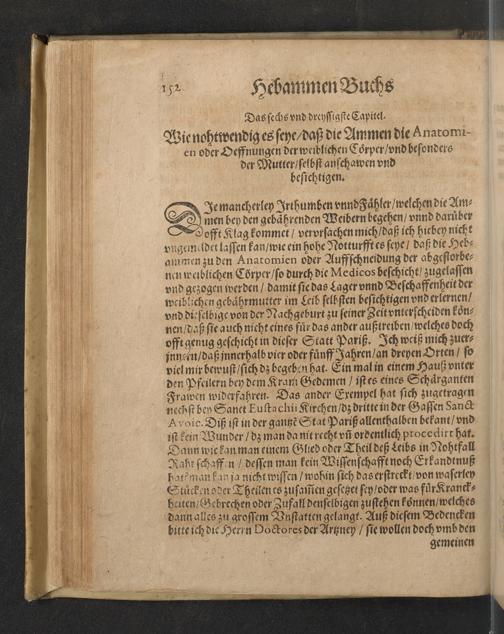 152
Hebammen Buchs
Das sechs vnd dreyssigste Capitel.
Wie nohtwendig es seye/daß die Ammen die Anatomi-
en oder Oeffnungen der weiblichen Cörper/vnd besonders
der Mutter/selbst anschawen vnd
besichtigen.
Die mancherley Irthumben vnnd Fähler/welchen die Am-
men bey den gebährenden Weibern begehen/vnnd darüber
offt Klag kommet/verorsachen mich/daß ich hiebey nicht
vngemeldet lassen kan/wie ein hohe Notturfft es seye/daß die Heb-
ammen zu den Anatomien oder Auffschneidung der abgestorbe-
nen weiblichen Cörper/so durch die Medicos beschicht/zugelassen
vnd gezogen werden/damit sie das Lager vnnd Beschaffenheit der
weiblichen gebährmutter im Leib selbsten besichtigen vnd erlernen/
vnd dieselbige von der Nachgeburt zu seiner Zeit vnterscheiden kön-
nen/daß sie auch nicht eines für das ander außtreiben/welches doch
offt genug geschicht in dieser Statt Pariß. Ich weiß mich zuer-
innern/daß innerhalb vier oder fünff Jahren/an dreyen Orten/so
viel mir bewust/sich dz begeben hat. Ein mal in einem Hauß vnter
den Pfeilern bey dem Kram Gedemen/ist es eines Schärganten
Frawen widerfahren. Das ander Exempel hat sich zugetragen
nechst bey Sanct Eustachii Kirchen/dz dritte in der Gassen Sanct
Avoie. Diß ist in der gantzē Stat Pariß allenthalben bekant/vnd
ist kein Wunder/dz man da nit recht vn̄ ordentlich procedirt hat.
Dann wie kan man einem Glied oder Theil deß Leibs in Nohtfall
Raht schaffen/dessen man kein Wissenschafft noch Erkandtnuß
hat? man kan ja nicht wissen/wohin sich das erstreckt/von waserley
Stücken oder Theilen es zusam̄en gesetzet sey/oder was für Kranck-
heiten/Gebrechen oder Zufall denselbigen zustehen können/welches
dann alles zu grossem Vnstatten gelangt. Auß diesem Bedencken
bitte ich die Herrn Doctores der Artzney/sie wollen doch vmb den
gemeinen